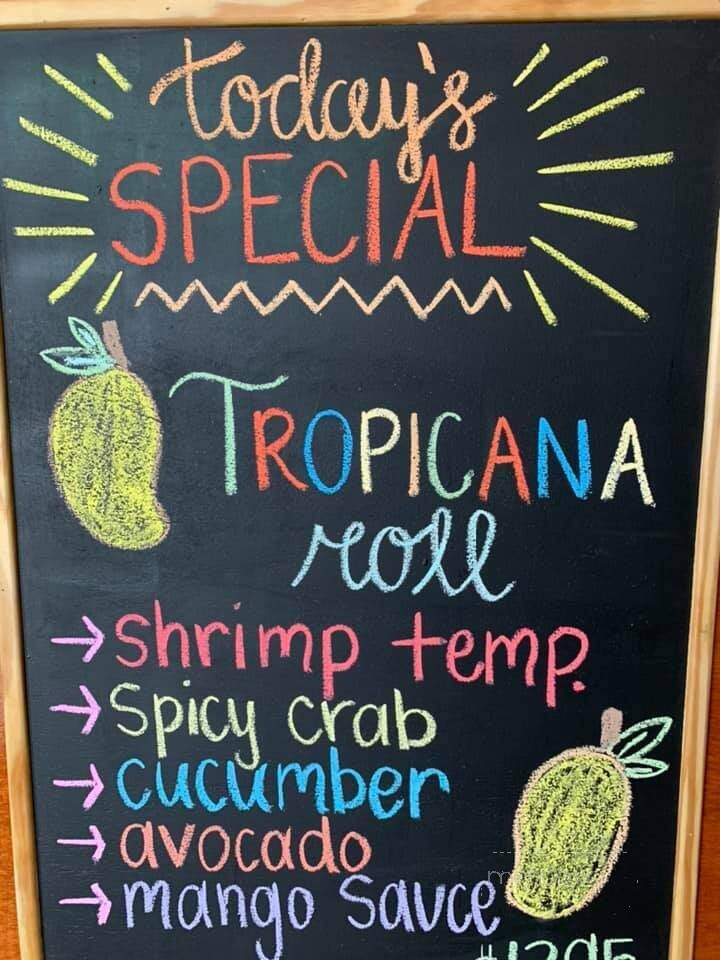 today's
SPECIAL
TROPICANA
roll
→ shrimp temp.
→ Spicy crab
→ cucumber
→ avocado
→ mango sauce